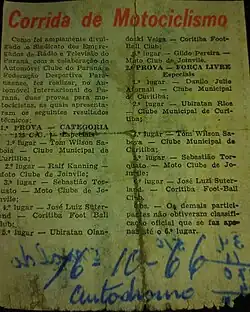 Corrida de Motociclismo
Como foi amplamente divul-
gado o Sindicato dos Empre-
gados de Rádio e Televisão do
Paraná, com a colaboração do
Automóvel Clube do Paraná e
Federação Desportiva Para-
naense, fez realizar, no Au-
tomóvel Internacional do Pa-
raná, duas provas para mo-
tocicletas, as quais apresenta-
ram os seguintes resultados
técnicos:
1.ª PROVA - CATEGORIA
Especiais
1.º lugar - Tom Wilson Sa-
boia - Clube Municipal de
Curitiba;
2.º lugar - Ralf Kunning -
Moto Clube de Joinvile;
3.º lugar - Sebastião Tor-
busto - Moto Clube de Jo-
invile;
4.º lugar - José Luiz Suter-
land - Coritiba Foot Ball
Clube;
5.º lugar - Ubiratan Olan-
Veiga - Coritiba Foot
Ball Club;
6.º lugar - Gildo Pereira
- Moto Clube de Joinvile.
2.ª PROVA - FÔRÇA LIVRE
Especiais
1.º lugar - Danilo Julio
- Clube Municipal de
Curitiba;
2.º lugar - Ubiratan Rios
- Clube Municipal de Curi-
tiba;
lugar - Tom Wilson Sa-
boia - Clube Municipal de
Curitiba;
lugar - Sebastião Tor-
busto - Moto Clube de Jo-
invile;
lugar - José Luzi Suter-
land - Coritiba Foot-Ball
Club.
Obs. - Os demais partici-
pantes não obtiveram classifi-
cação oficial que se fez ape-
nas até o 6.º lugar.
autodromo